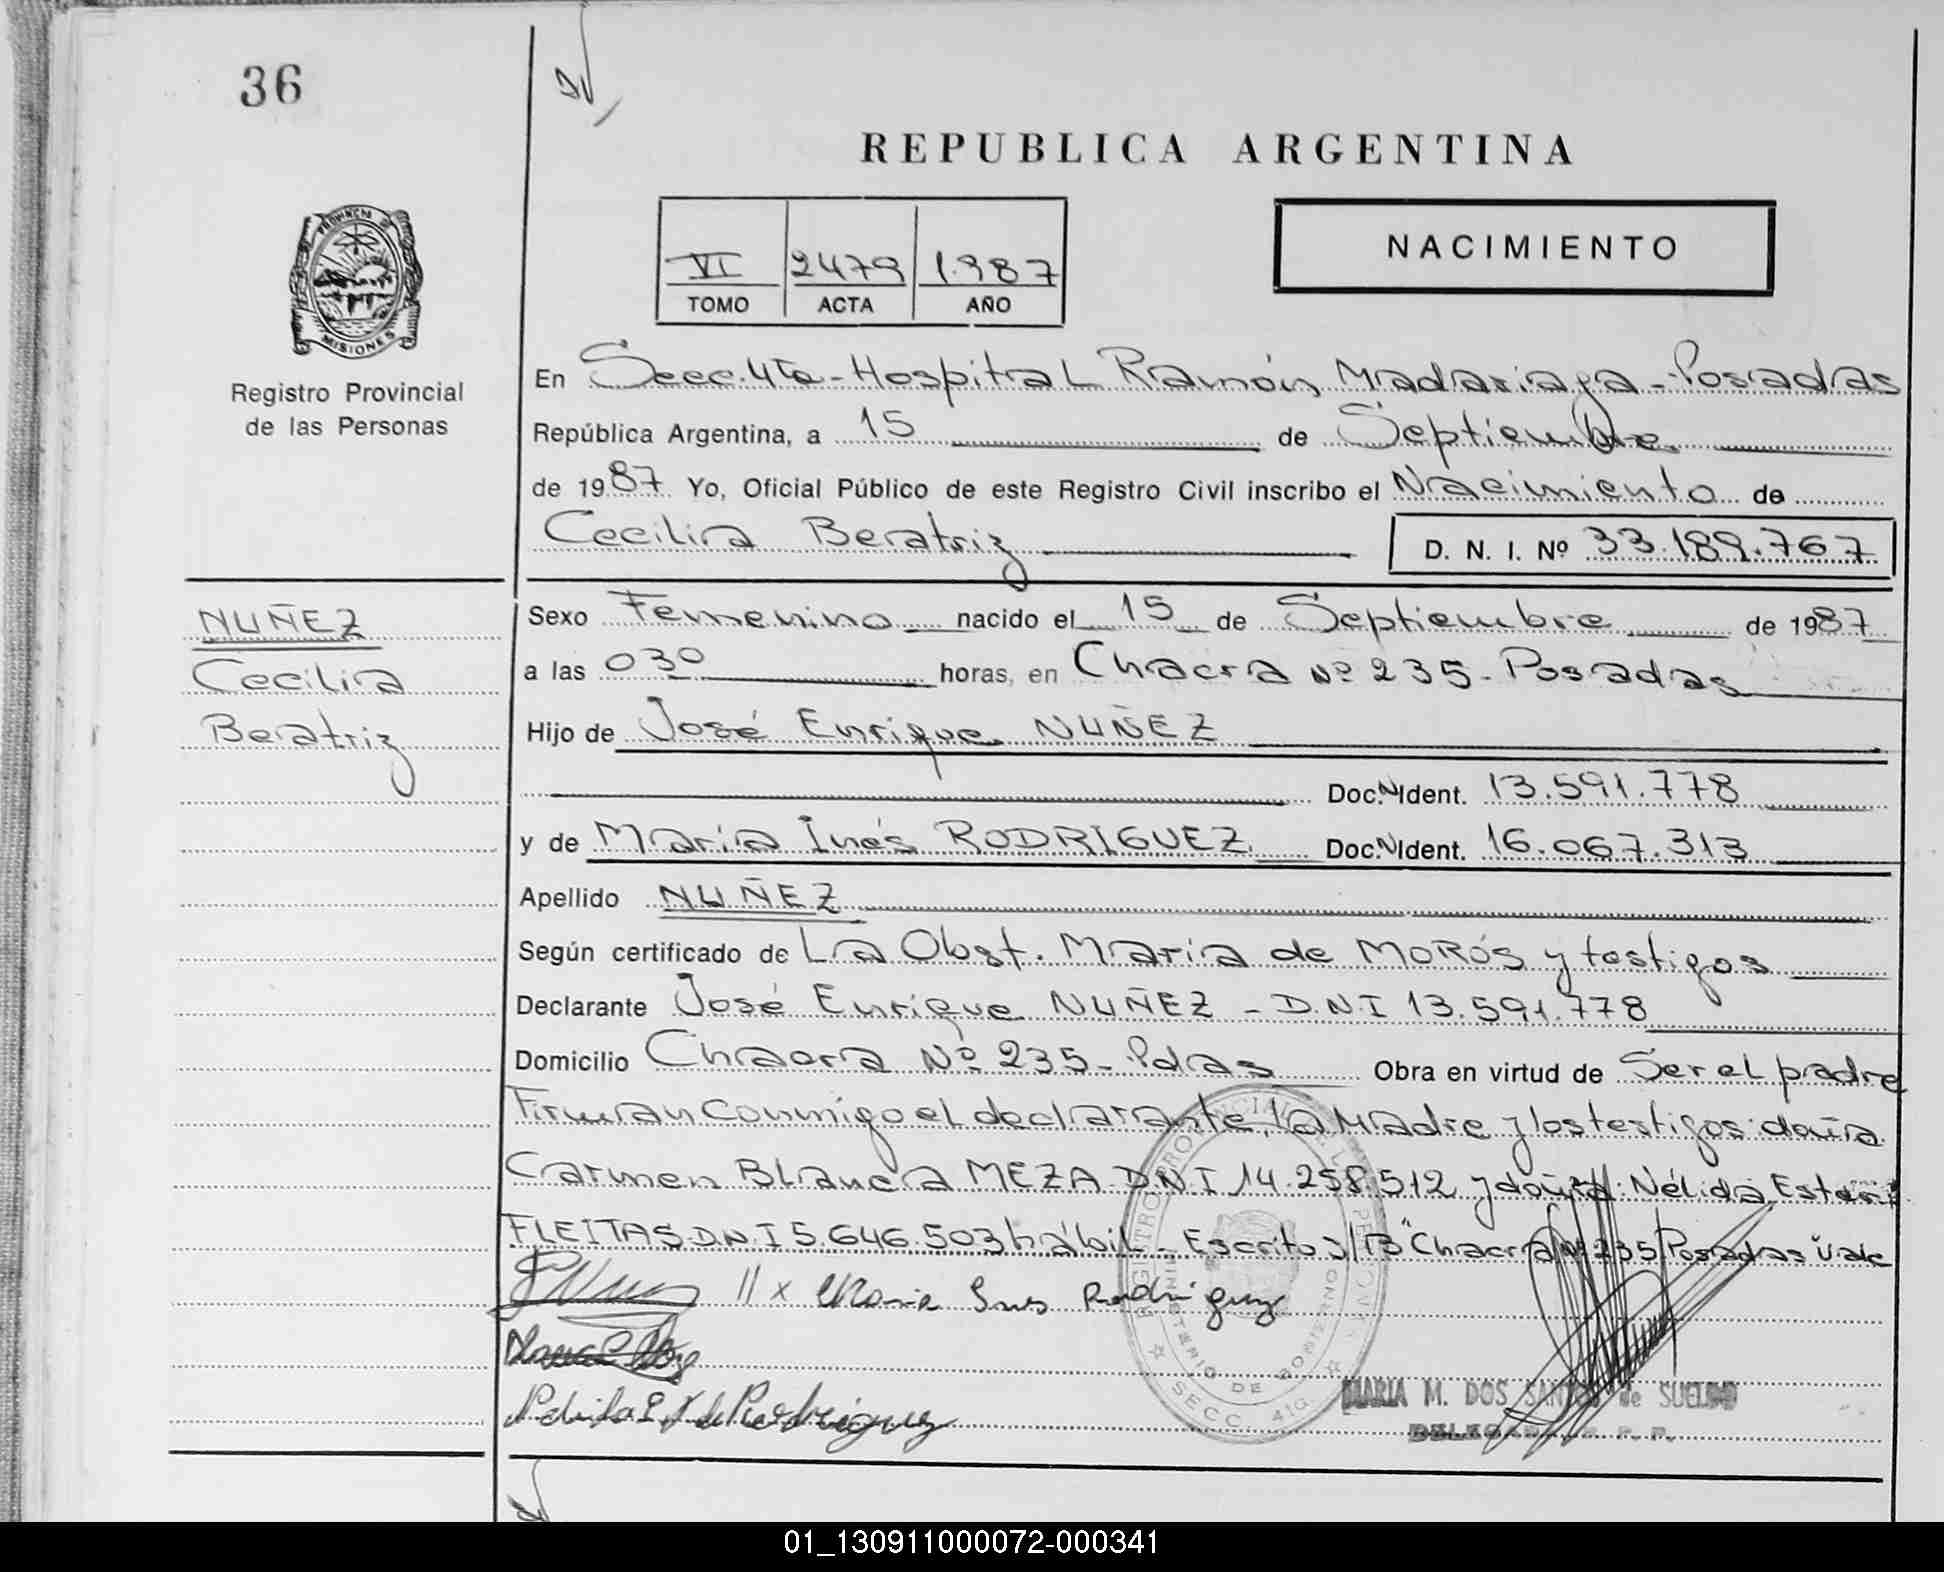 36
REPUBLICA ARGENTINA
PROVINCIA DE
MISIONES
Registro Provincial
de las Personas
VI 2479 1.987
TOMO ACTA AÑO
NACIMIENTO
En Secc. 4ta - Hospital Ramón Madariaga - Posadas
República Argentina, a 15 de Septiembre
de 1987 Yo, Oficial Público de este Registro Civil inscribo el Nacimiento de
Cecilia Beatriz D. N. I. Nº 33.189.767
NUÑEZ
Cecilia
Beatriz
Sexo Femenino nacido el 15 de Septiembre de 1987
a las 030 horas, en Chacra Nº 235 - Posadas
Hijo de José Enrique NUÑEZ
Doc. N. Ident. 13.591.778
y de María Inés RODRIGUEZ Doc. N. Ident. 16.067.313
Apellido NUÑEZ
Según certificado de La Obst. María de MORÓS y testigos
Declarante José Enrique NUÑEZ - D.N.I 13.591.778
Domicilio Chacra Nº 235 - Pdas Obra en virtud de Ser el padre
Firman conmigo el declarante, la Madre y los testigos: doña
Carmen Blanca MEZA D.N.I 14.258.512 y doña Nélida Ester
FLEITAS D.N.I 5.646.503 hábil - Escrito s/B "Chacra Nº 235 Posadas" Vale
María Ines Rodriguez
de Rodriguez
MARIA M. DOS SANTOS de SUELDO
01_130911000072-000341